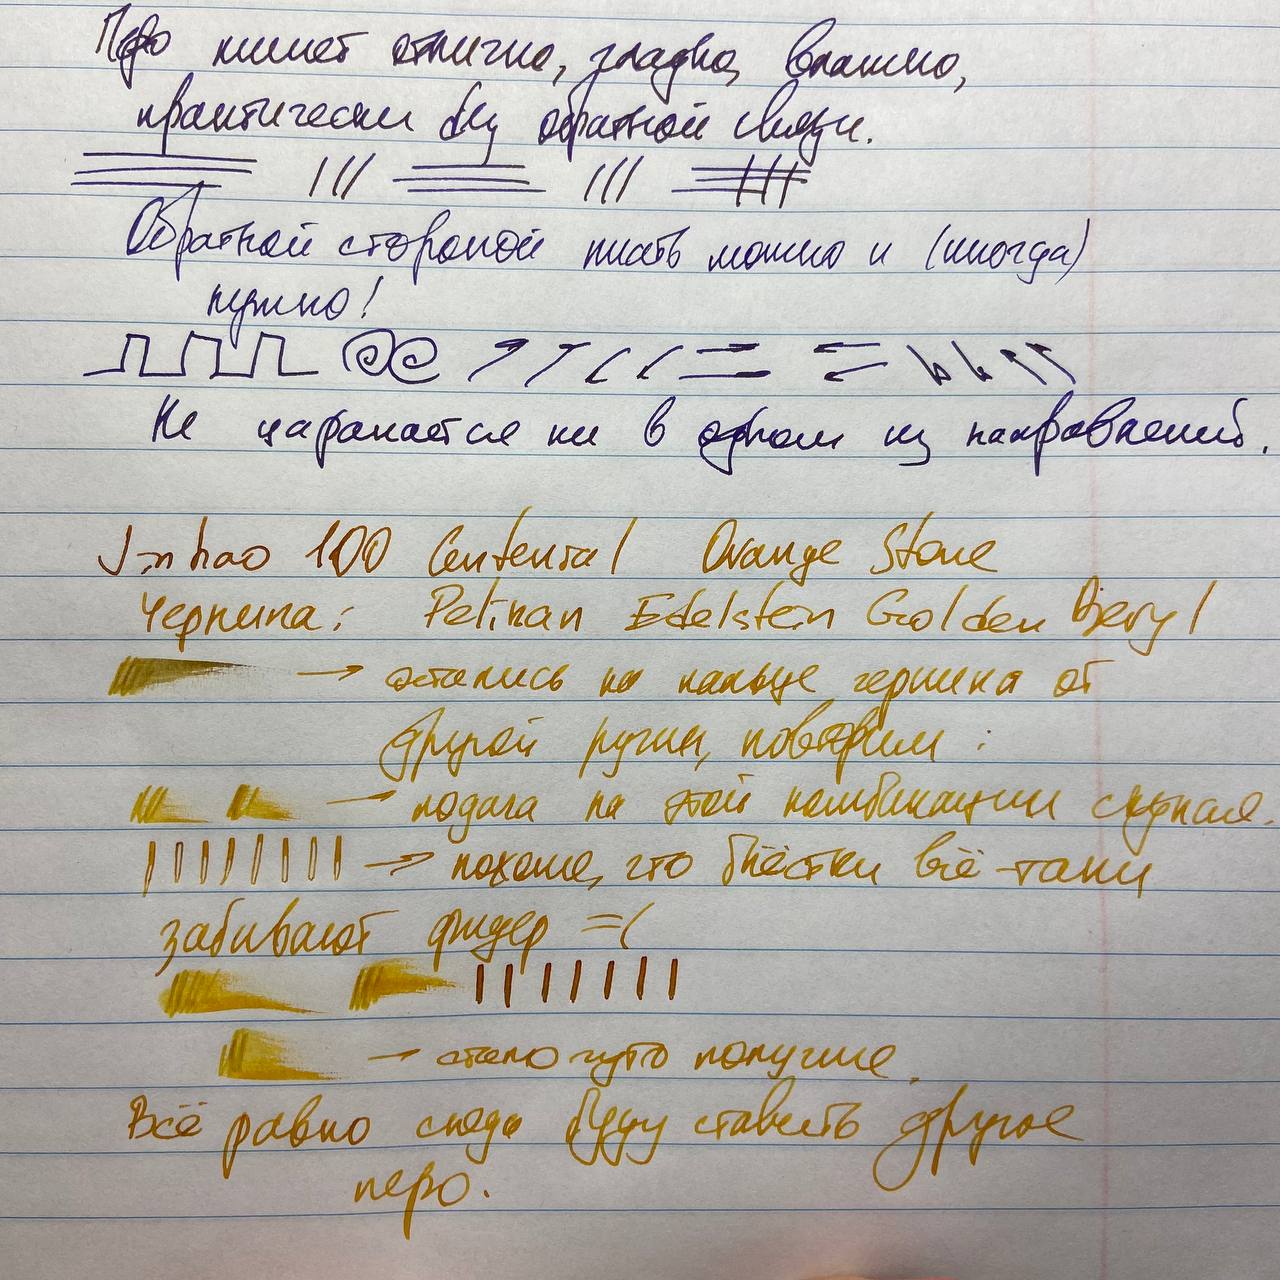 Перо пишет отлично, гладко, влажно,
практически без обратной связи.
Обратной стороной писать можно и (иногда)
нужно!
Не царапается ни в одном из направлений.
Jinhao 100 Centenial Orange Stone
Чернила: Pelikan Edelstein Golden Beryl
→ остались на пальце чернила от
другой ручки, повторим:
→ подача на этой комбинации скупая.
→ похоже, что блёстки всё-таки
забивают фидер =(
→ стало чуть получше.
Всё равно сюда буду ставить другое
перо.